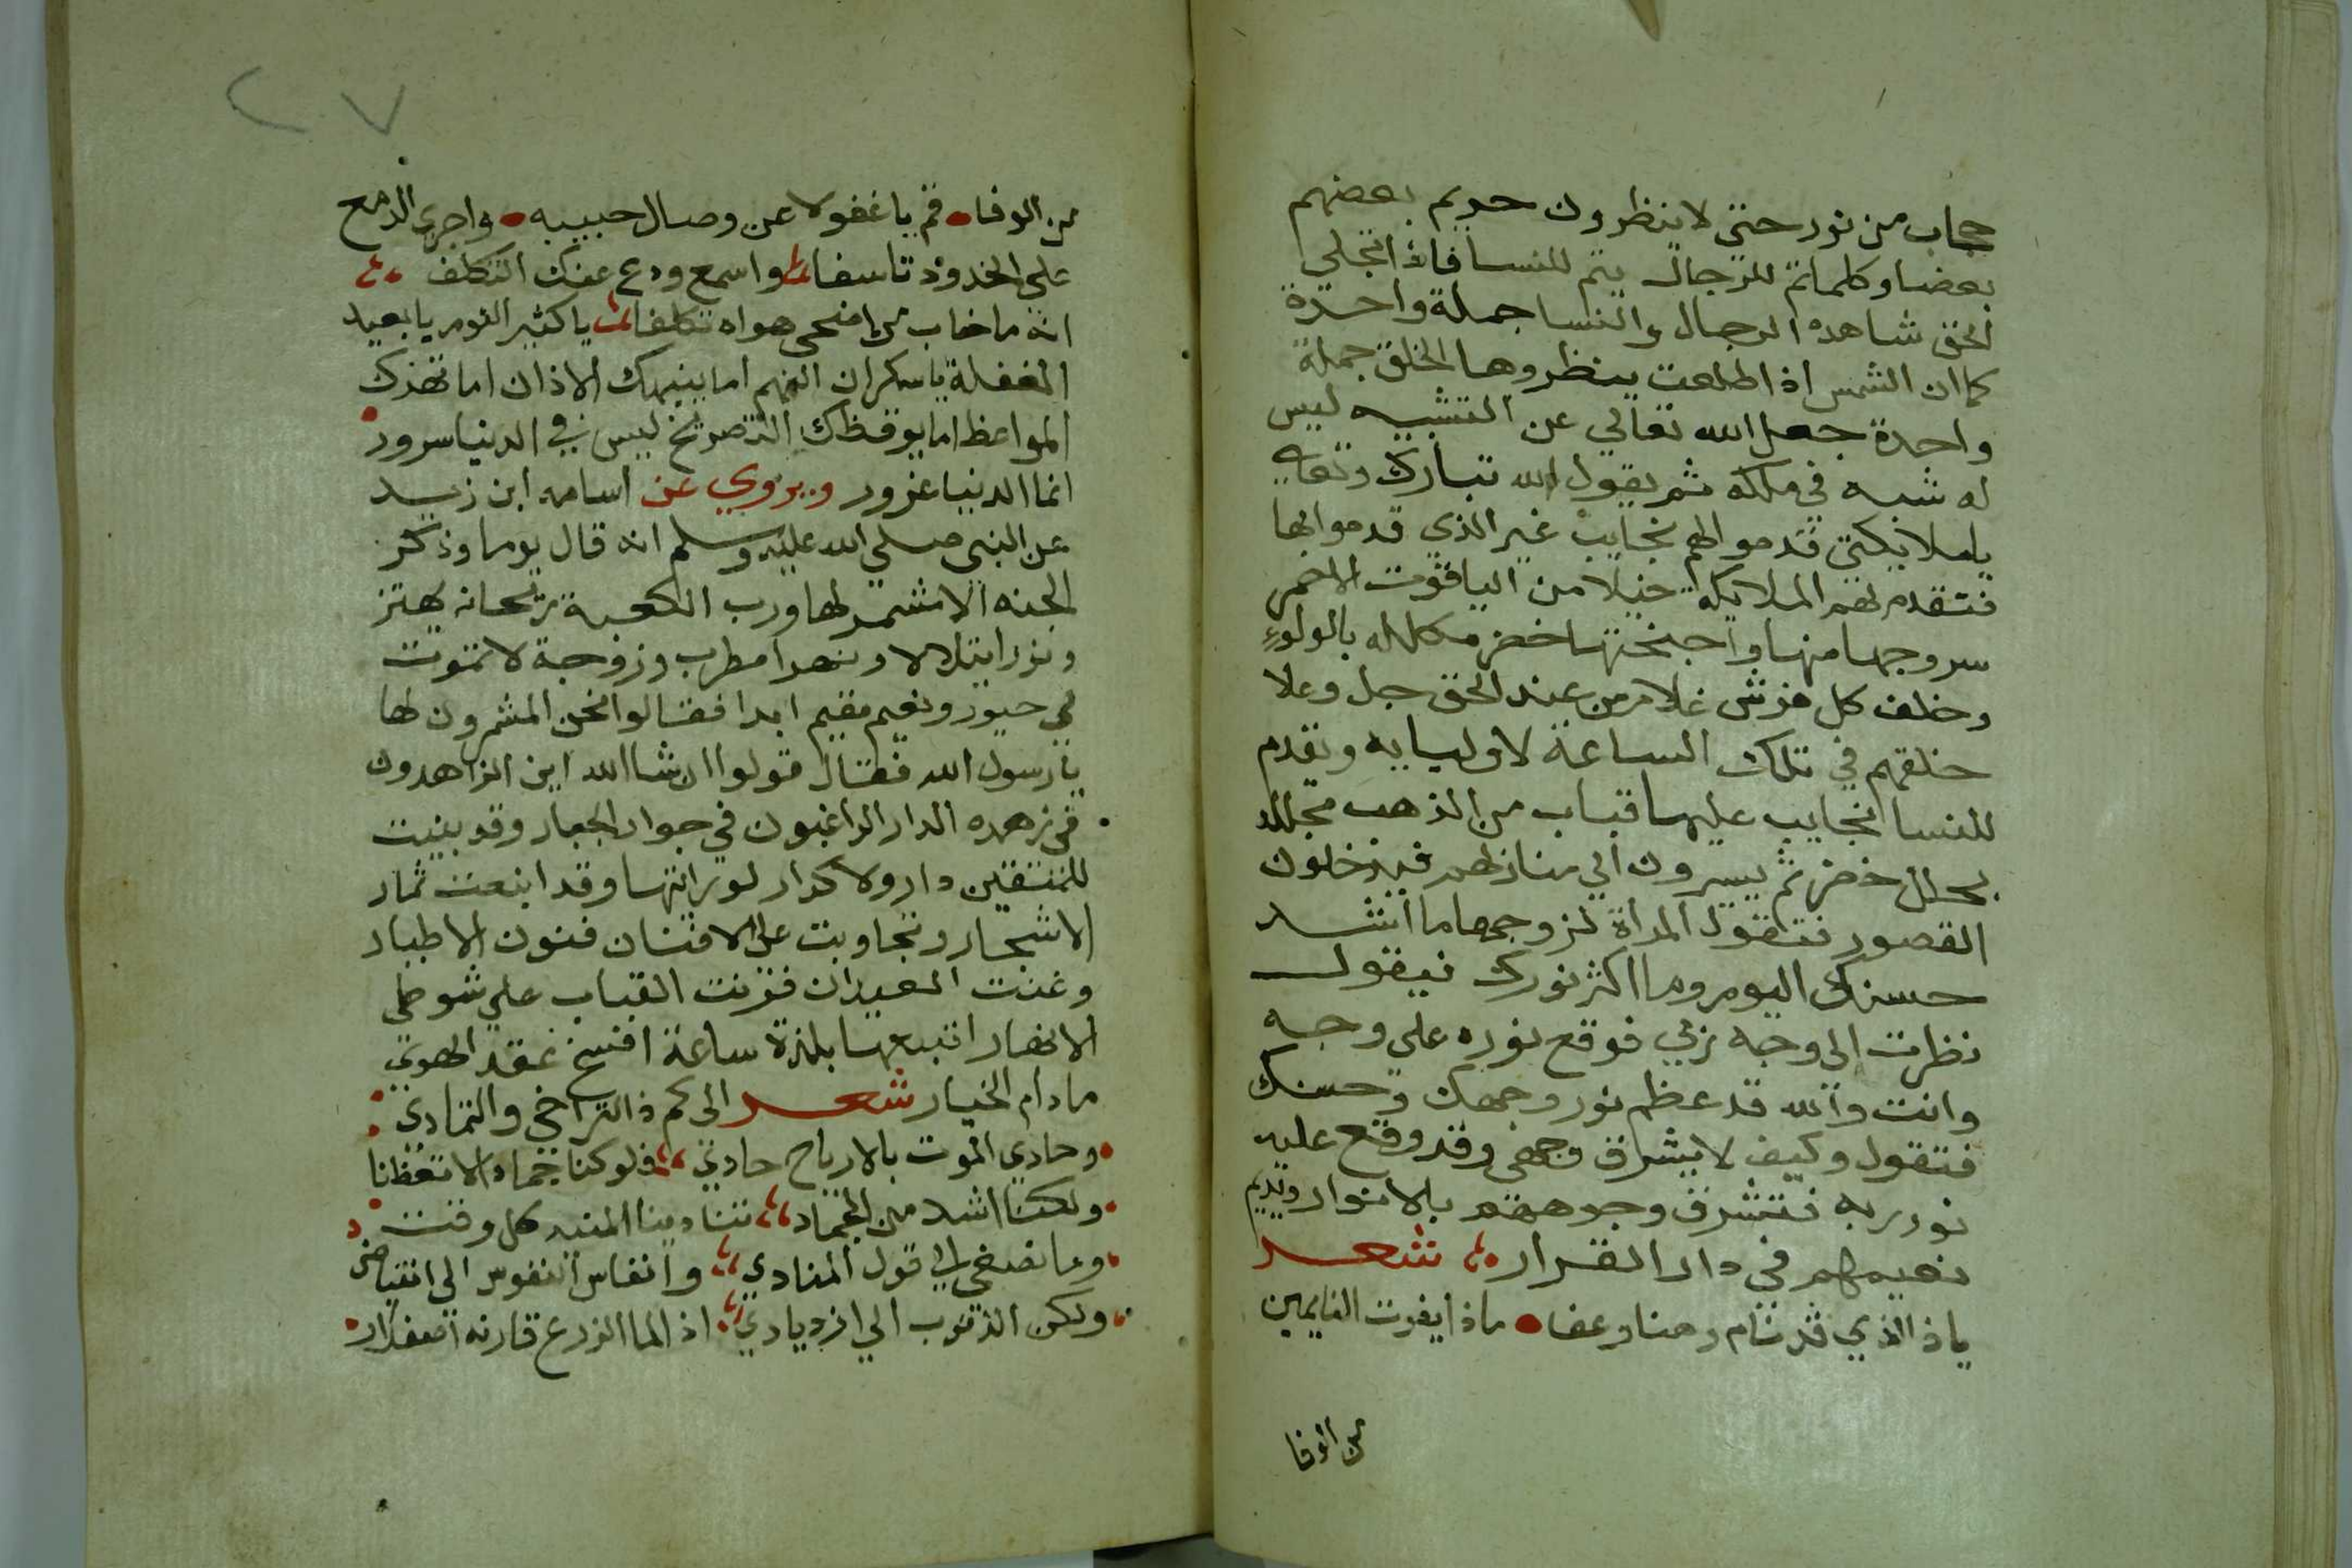 حجاب من نور حتى لا ينظرون حريم بعضهم
بعضا وكلما تم للرجال يتم للنسا فاذا تجلي
الحق شاهده الرجال والنسا جملة واحدة
كما ان الشمس اذا طلعت ينظروها الخلق جملة
واحدة جعل الله تعالي عن التشبيه ليس
له شبه في ملكه ثم يقول الله تبارك وتعالى
يا ملايكتي قدموا لهم نجايب غير الذي قدموا بها
فتقدم لهم الملايكة خيلا من الياقوت الاحمر
سروجها منها واجنحتها خضر مكلله بالولوء
وخلف كل فرش غلام من عند الحق جل وعلا
خلقهم في تلك الساعة لاوليايه وتقدم
للنسا نجايب عليها قباب من الذهب مجلله
بحلل خضر ثم يسيرون الي منازلهم فيدخلون
القصور فتقول المراة لزوجها ما اشد
حسنك اليوم وما اكثر نورك فيقول
نظرت الى وجه ربي فوقع نوره علي وجهه
وانت والله قد عظم نور وجهك وحسنك
فتقول وكيف لا يشرق وجهي وقد وقع عليه
نور ربه فتشرق وجوههم بالانوار ويديم
نعيمهم في دار القرار شعر
يا ذا الذي قد نام رهنا وغفا ماذا يفوت النايمين
من الوفا
٢٧
من الوفا قم يا غفولا عن وصال حبيبه واجري الدمع
على الخدود تاسفا واسمع ودع عنك التكلف
انه ما خاب من اضحى هواه تكلفا يا كثير النوم يا بعيد
الغفلة يا سكران الفهم اما ينبهك الاذان اما تهزك
المواعظ اما يوقظك التصريخ ليس في الدنيا سرور
انما الدنيا غرور ويروي عن اسامه ابن زيد
عن النبي صلي الله عليه وسلم انه قال يوما وذكر
الجنه الا مشمر لها ورب الكعبة ريحانه يهتز
ونورا يتلالا ونهرا مطرب وزوجة لا تموت
في حبور ونعيم مقيم ابدا فقالوا نحن المشمرون لها
يا رسول الله فقال قولوا ان شا الله اين الزاهدون
في زهده الدار الراغبون في جوار الجبار وقد بنيت
للمتقين دار ولا كدار لو رايتها وقد اينعت ثمار
الاشجار وتجاوبت على الافنان فنون الاطيار
وغنت العيدان فزنت القباب علي شواطي
الانهار اتبيعها بلذة ساعة افسخ عقد الهوي
ما دام الخيار شعر الى كم ذا التراخي والتمادي
وحادي الموت بالارباح حادي فلو كنا جمادا لاتعظنا
ولكنا اشد من الجماد تنادينا المنيه كل وقت
وما نصغي الي قول المنادي وانفاس النفوس الى انتقاص
ولكن الذنوب الي ازديادي اذا الما الزرع قارنه اصفرار